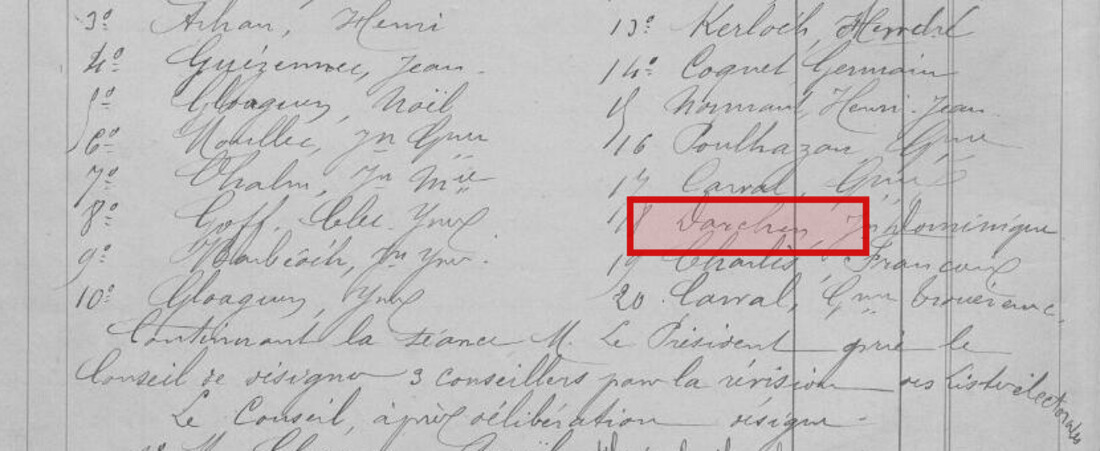 3º Arhan, Henri
4º Guézennec, Jean.
5º Gloaguen, Noël
6º Nouillec, Jn Yves
7º Chalm, Jn Mie
8º Goff, Clec. Yves
9º Jn Yves.
10º Gloaguen, Yves
13º Kerloëh,
14º Coquet Germain
15 Normant, Henri-Jean
16 Poulhazan, Gme
17 Carval,
18 Darchen, Jn Dominique
19 Charlès, François
20. Carval,
Continuant la séance M. Le Président prie le
Conseil de désigner 3 conseillers pour la révision des listes électorales
Le Conseil, après délibération désigne